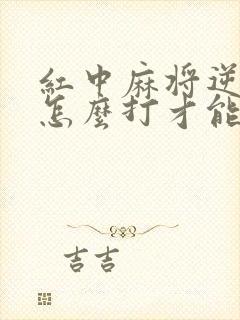 紅中麻将逆
怎麼打才能
吉吉